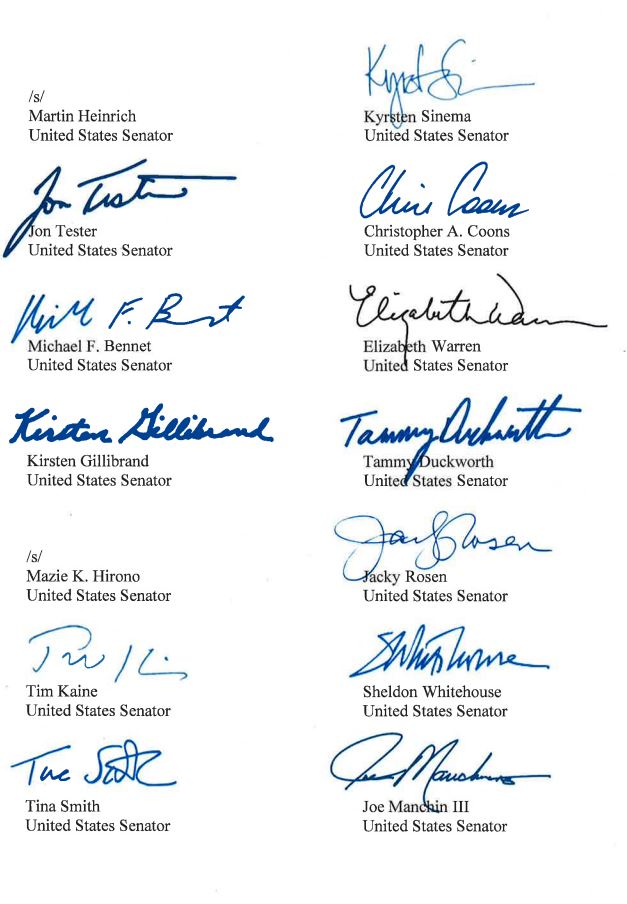 /s/
Martin Heinrich
United States Senator
Kyrsten Sinema
Kyrsten Sinema
United States Senator
Jon Tester
Jon Tester
United States Senator
Chris Coons
Christopher A. Coons
United States Senator
F. Bennet
Michael F. Bennet
United States Senator
Elizabeth Warren
Elizabeth Warren
United States Senator
Kirsten Gillibrand
Kirsten Gillibrand
United States Senator
Tammy Duckworth
Tammy Duckworth
United States Senator
/s/
Mazie K. Hirono
United States Senator
Jacky Rosen
Jacky Rosen
United States Senator
Tim Kaine
United States Senator
Sheldon Whitehouse
United States Senator
Tina Smith
Tina Smith
United States Senator
Joe Manchin
Joe Manchin III
United States Senator